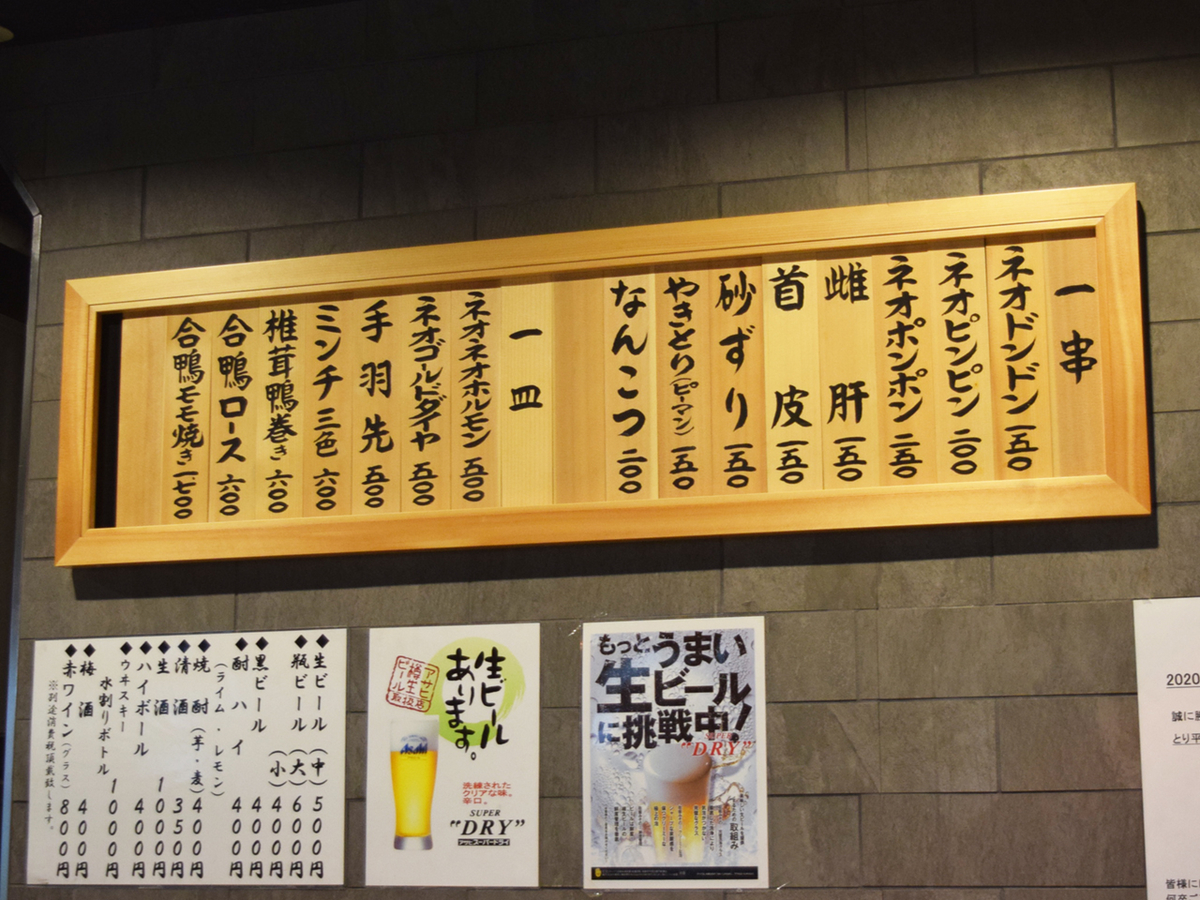 一串
ネオドンドン 一五〇
ネオピンピン 二〇〇
ネオポンポン 二五〇
雌肝 一五〇
首皮 一五〇
砂ずり 一五〇
やきとり(ピーマン) 一五〇
なんこつ 二〇〇
一皿
ネオネオホルモン 五〇〇
ネオゴールドダイヤ 五〇〇
手羽先 五〇〇
ミンチ三色 六〇〇
椎茸鴨巻き 六〇〇
合鴨ロース 六〇〇
合鴨モモ焼き 一七〇〇
◆生ビール(中) 500円
◆瓶ビール(大) 600円
(小) 400円
◆黒ビール 400円
◆酎ハイ 400円
(ライム・レモン)
◆焼酎(芋・麦) 400円
◆清酒 350円
◆生酒 1000円
◆ハイボール 400円
◆ウヰスキー
水割りボトル 1000円
◆梅酒 400円
◆赤ワイン(グラス) 800円
※別途消費税頂戴致します。
生ビール
あります。
アサヒ
樽生
ビール
取扱店
Asahi
洗練された
クリアな味。
辛口。
SUPER
"DRY"
アサヒスーパードライ
もっとうまい
生ビール
に挑戦中!
"DRY"
2020
誠に勝
とり平
皆様に